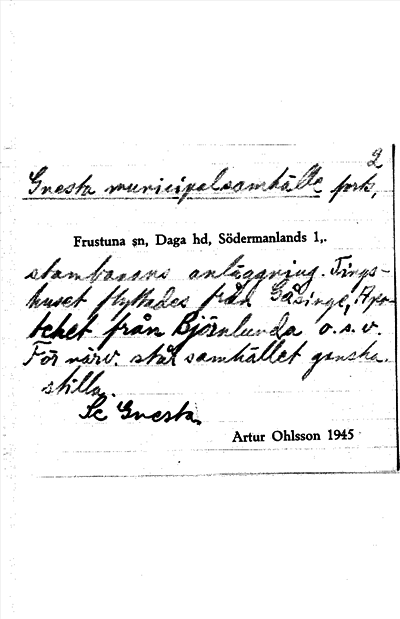 2
Gnesta municipalsamhälle forts,
Frustuna sn, Daga hd, Södermanlands l,.
stambanans anläggning. Tings-
huset flyttades från Gåsinge, Apo-
teket från Björnlunda o.s.v.
För närv. står samhället ganska
stilla.
Se Gnesta.
Artur Ohlsson 1945